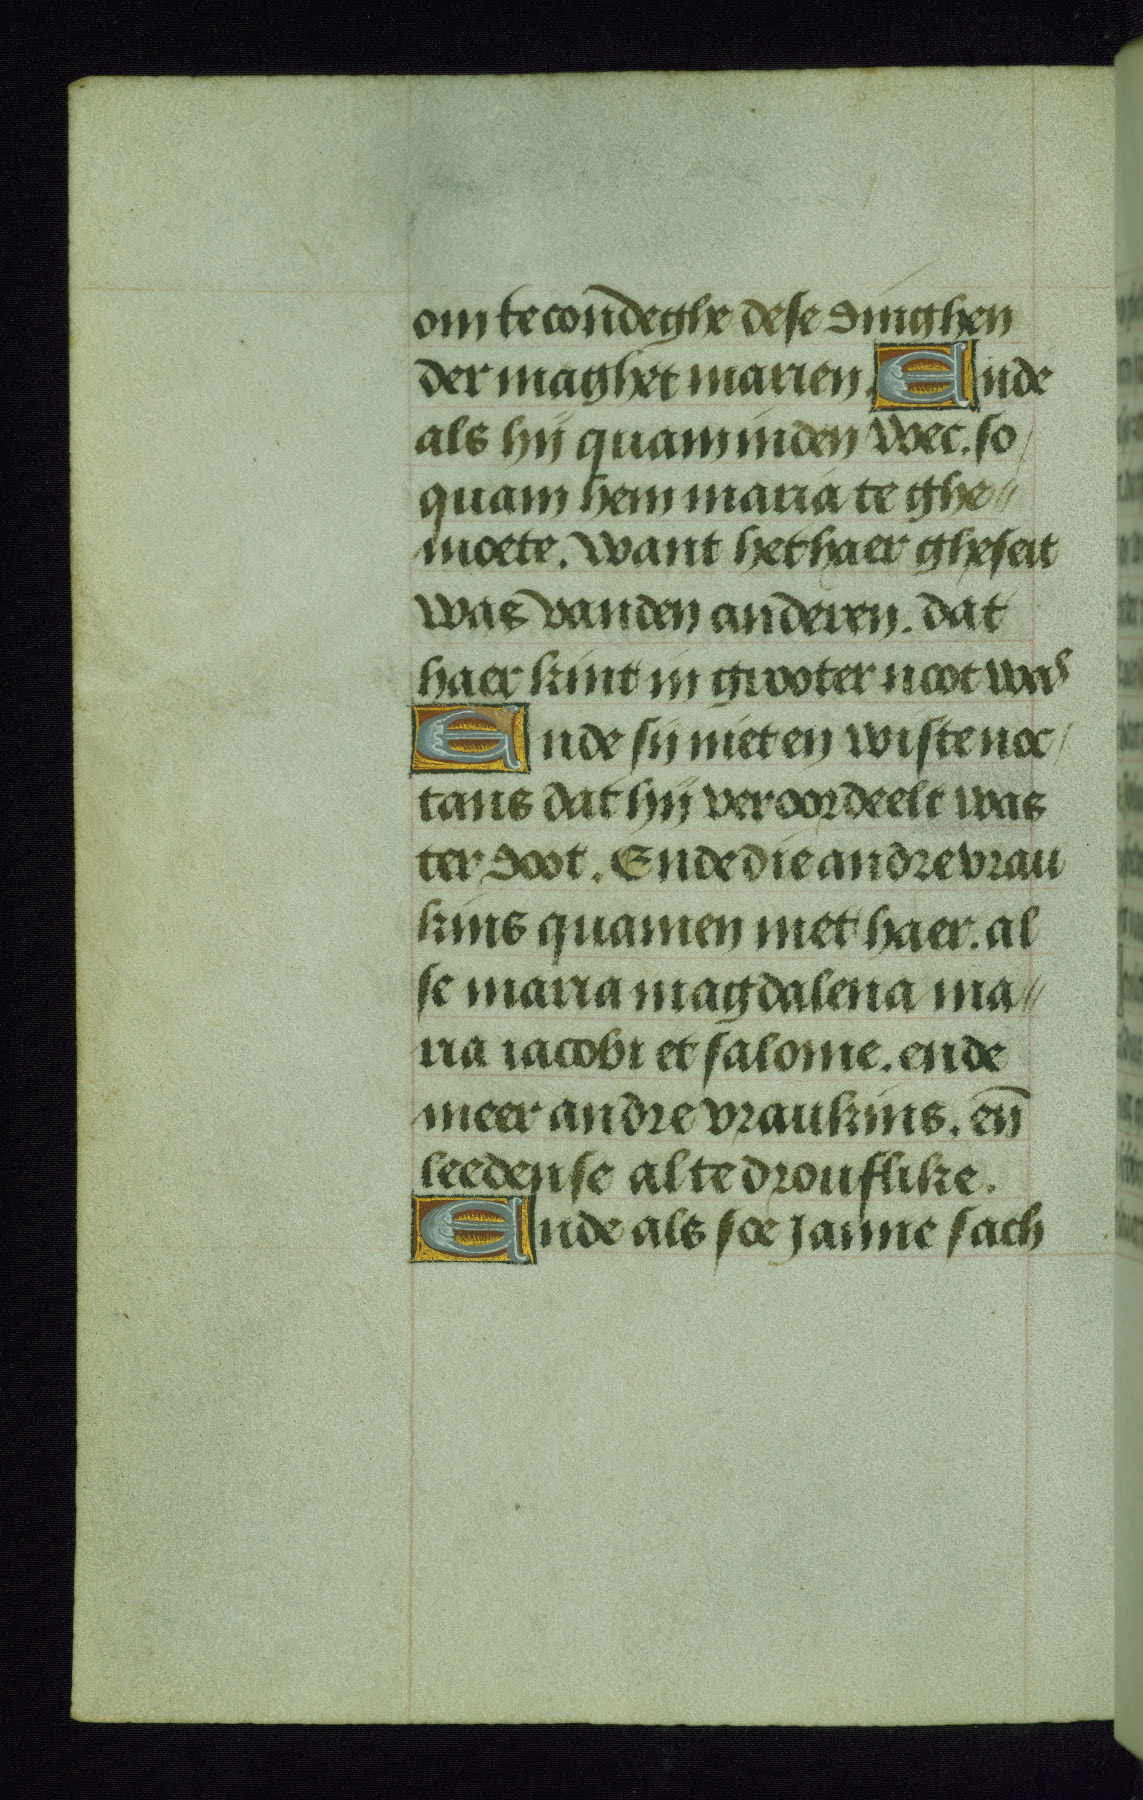 om te condeghe dese dinghen
der maghet marien. Ende
als hij quam inden wec. so
quam hem maria te ghe
moete. want het haer gheseit
was vanden anderen. dat
haer kint in grooter noot was
Ende sij niet en wiste noc
tans dat hij veroordeelt was
ter doot. Ende die andre vrau
kins quamen met haer. al
se maria magdalena ma
ria iacobi et salome. ende
meer andre vraukins. en̄
leedense al te drouflike.
Ende als soe Janne sach